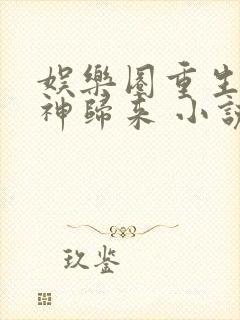 娛樂圈重生
神歸來 小說
玖鉴